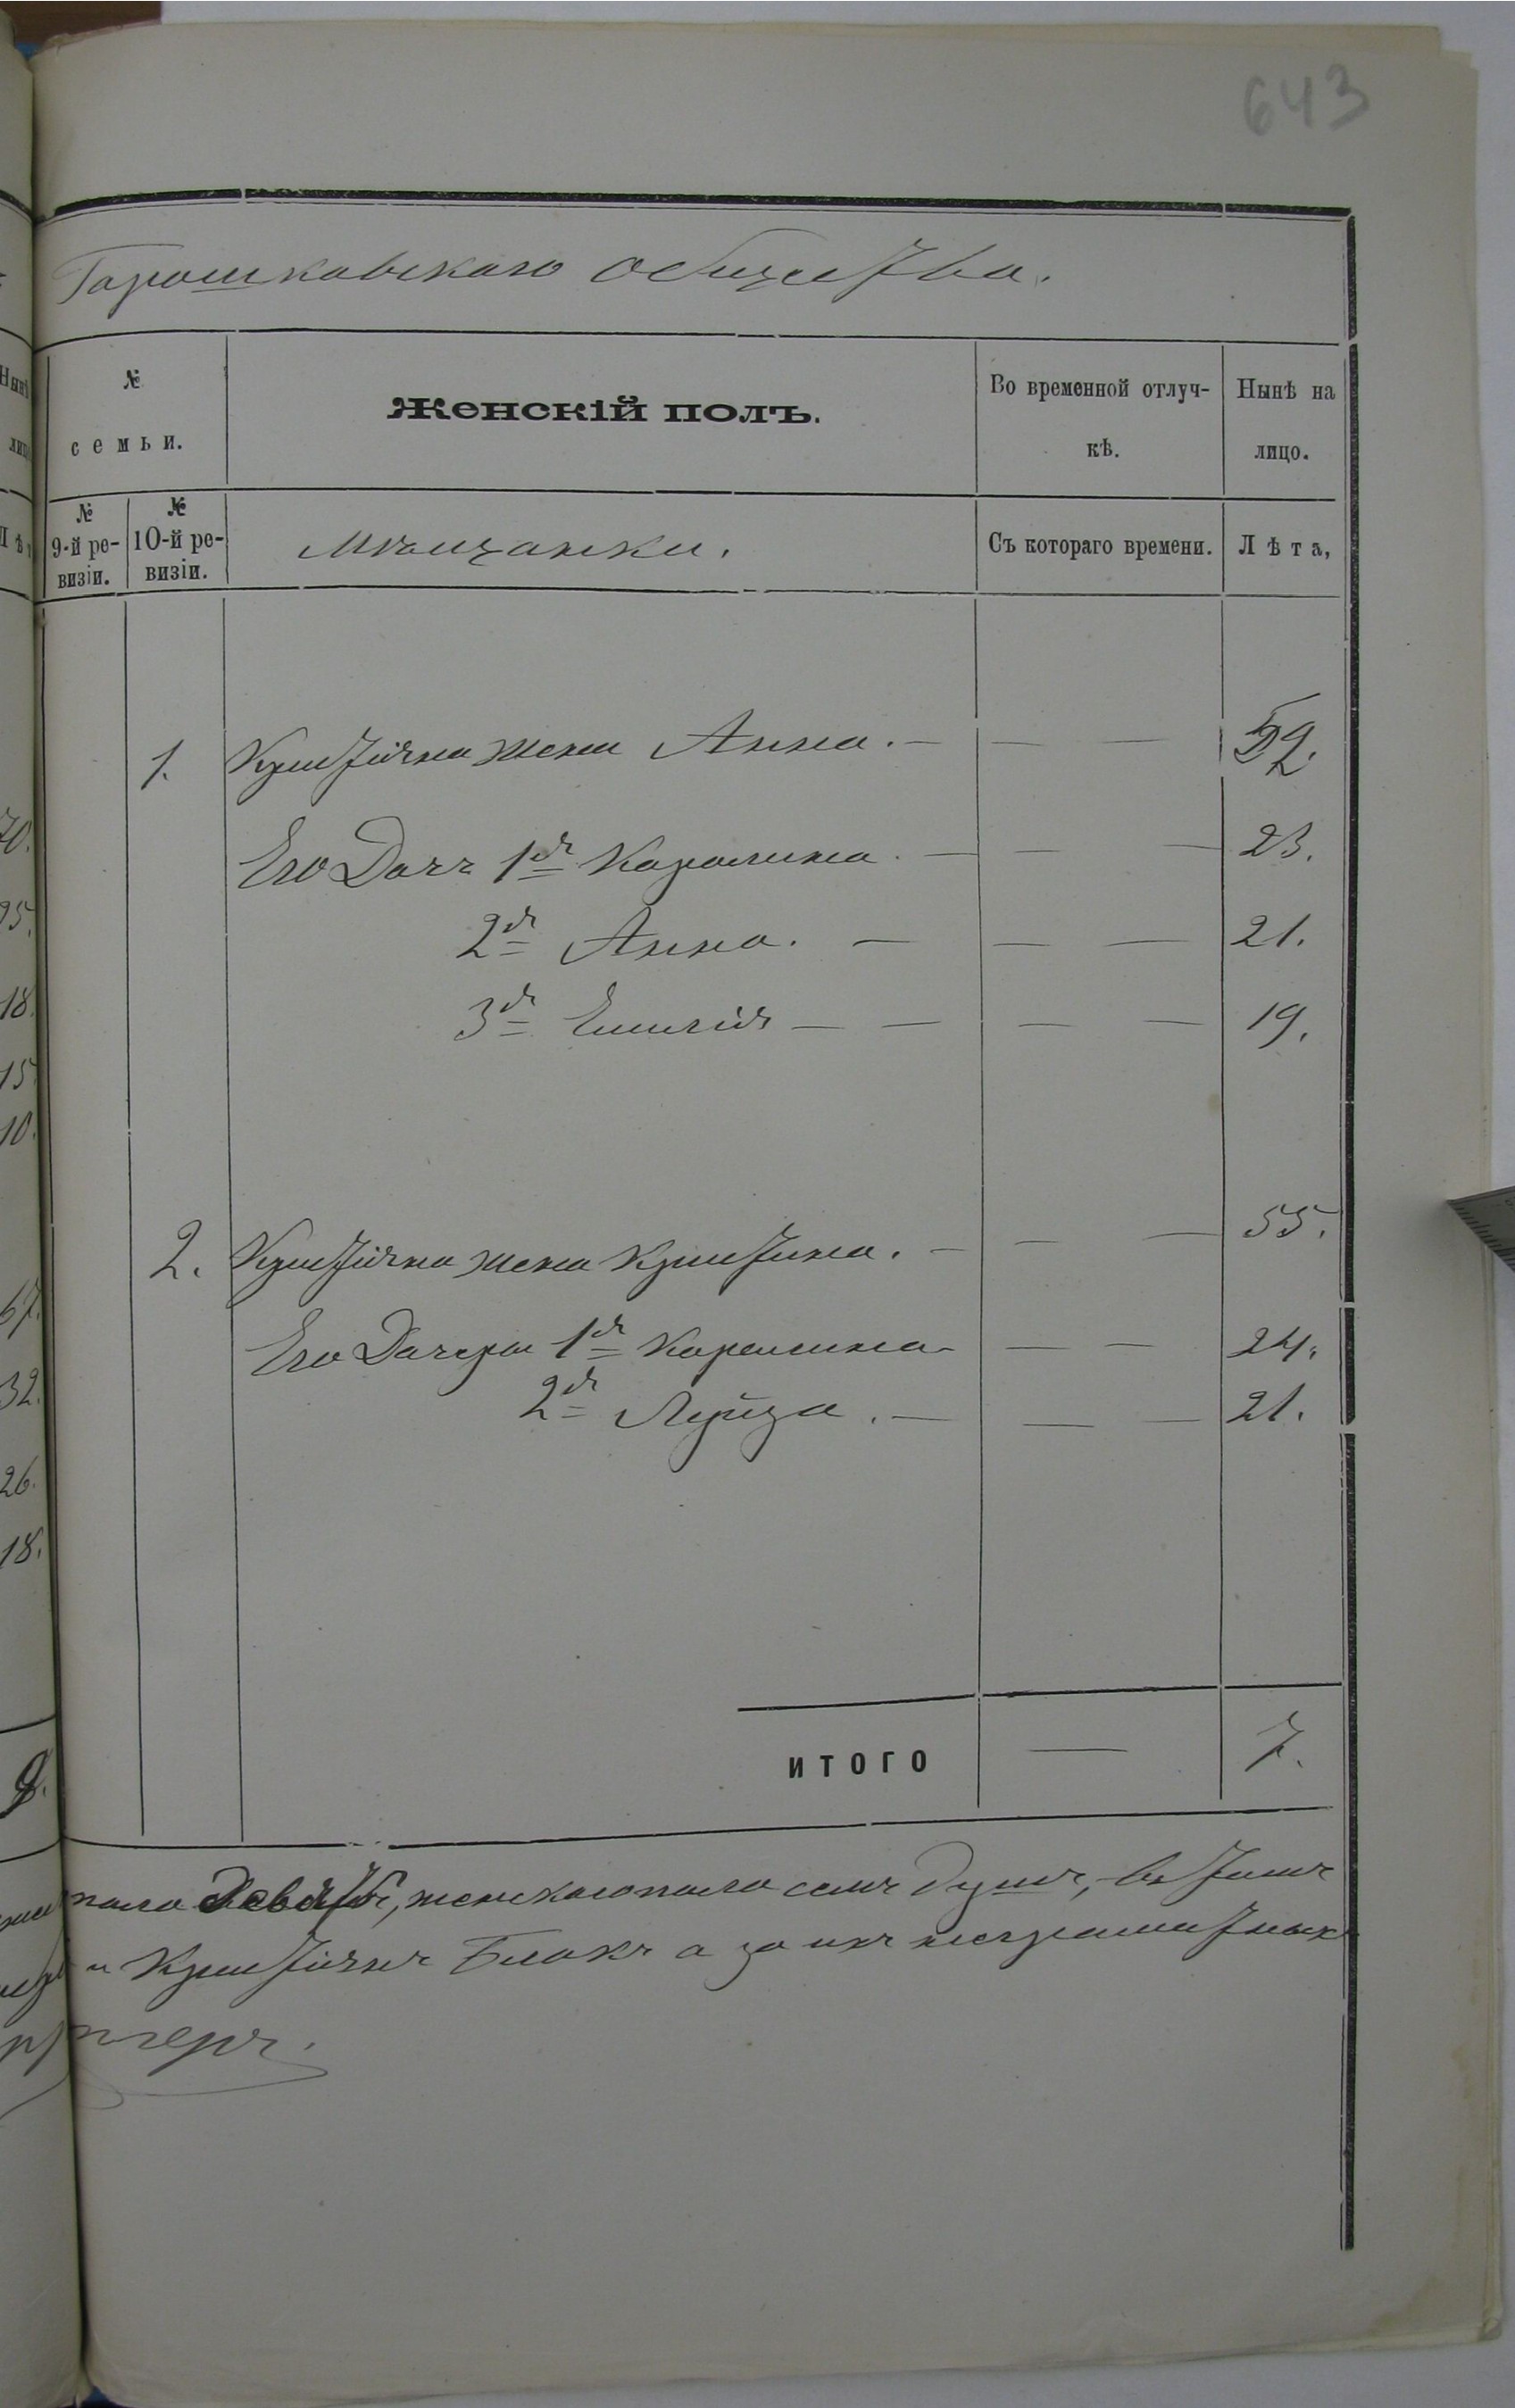 643
Горошковскаго общества.
№ семьи.
Женскій полъ.
Во временной отлуч-
кѣ.
Нынѣ на
лицо.
№ 9-й ре-
визіи.
№ 10-й ре-
визіи.
Мѣщанки.
Съ котораго времени.
Лѣта,
1. Христіяна жена Анна. — — — 52.
Его Дочь 1я Каролина. — — — 23.
2я Анна. — — — 21.
3я Емилія — — — — 19.
2. Христіяна жена Христина. — — — 55.
Его Дочери 1я Каролина — — 24.
2я Луиза. — — — 21.
ИТОГО — 7.
пола Девять, женскаго пола семь душъ, въ томъ
и Христіянъ Блокъ а за ихъ неграмотныхъ
70.
25.
18.
15.
10.
67.
32.
26.
18.
9.